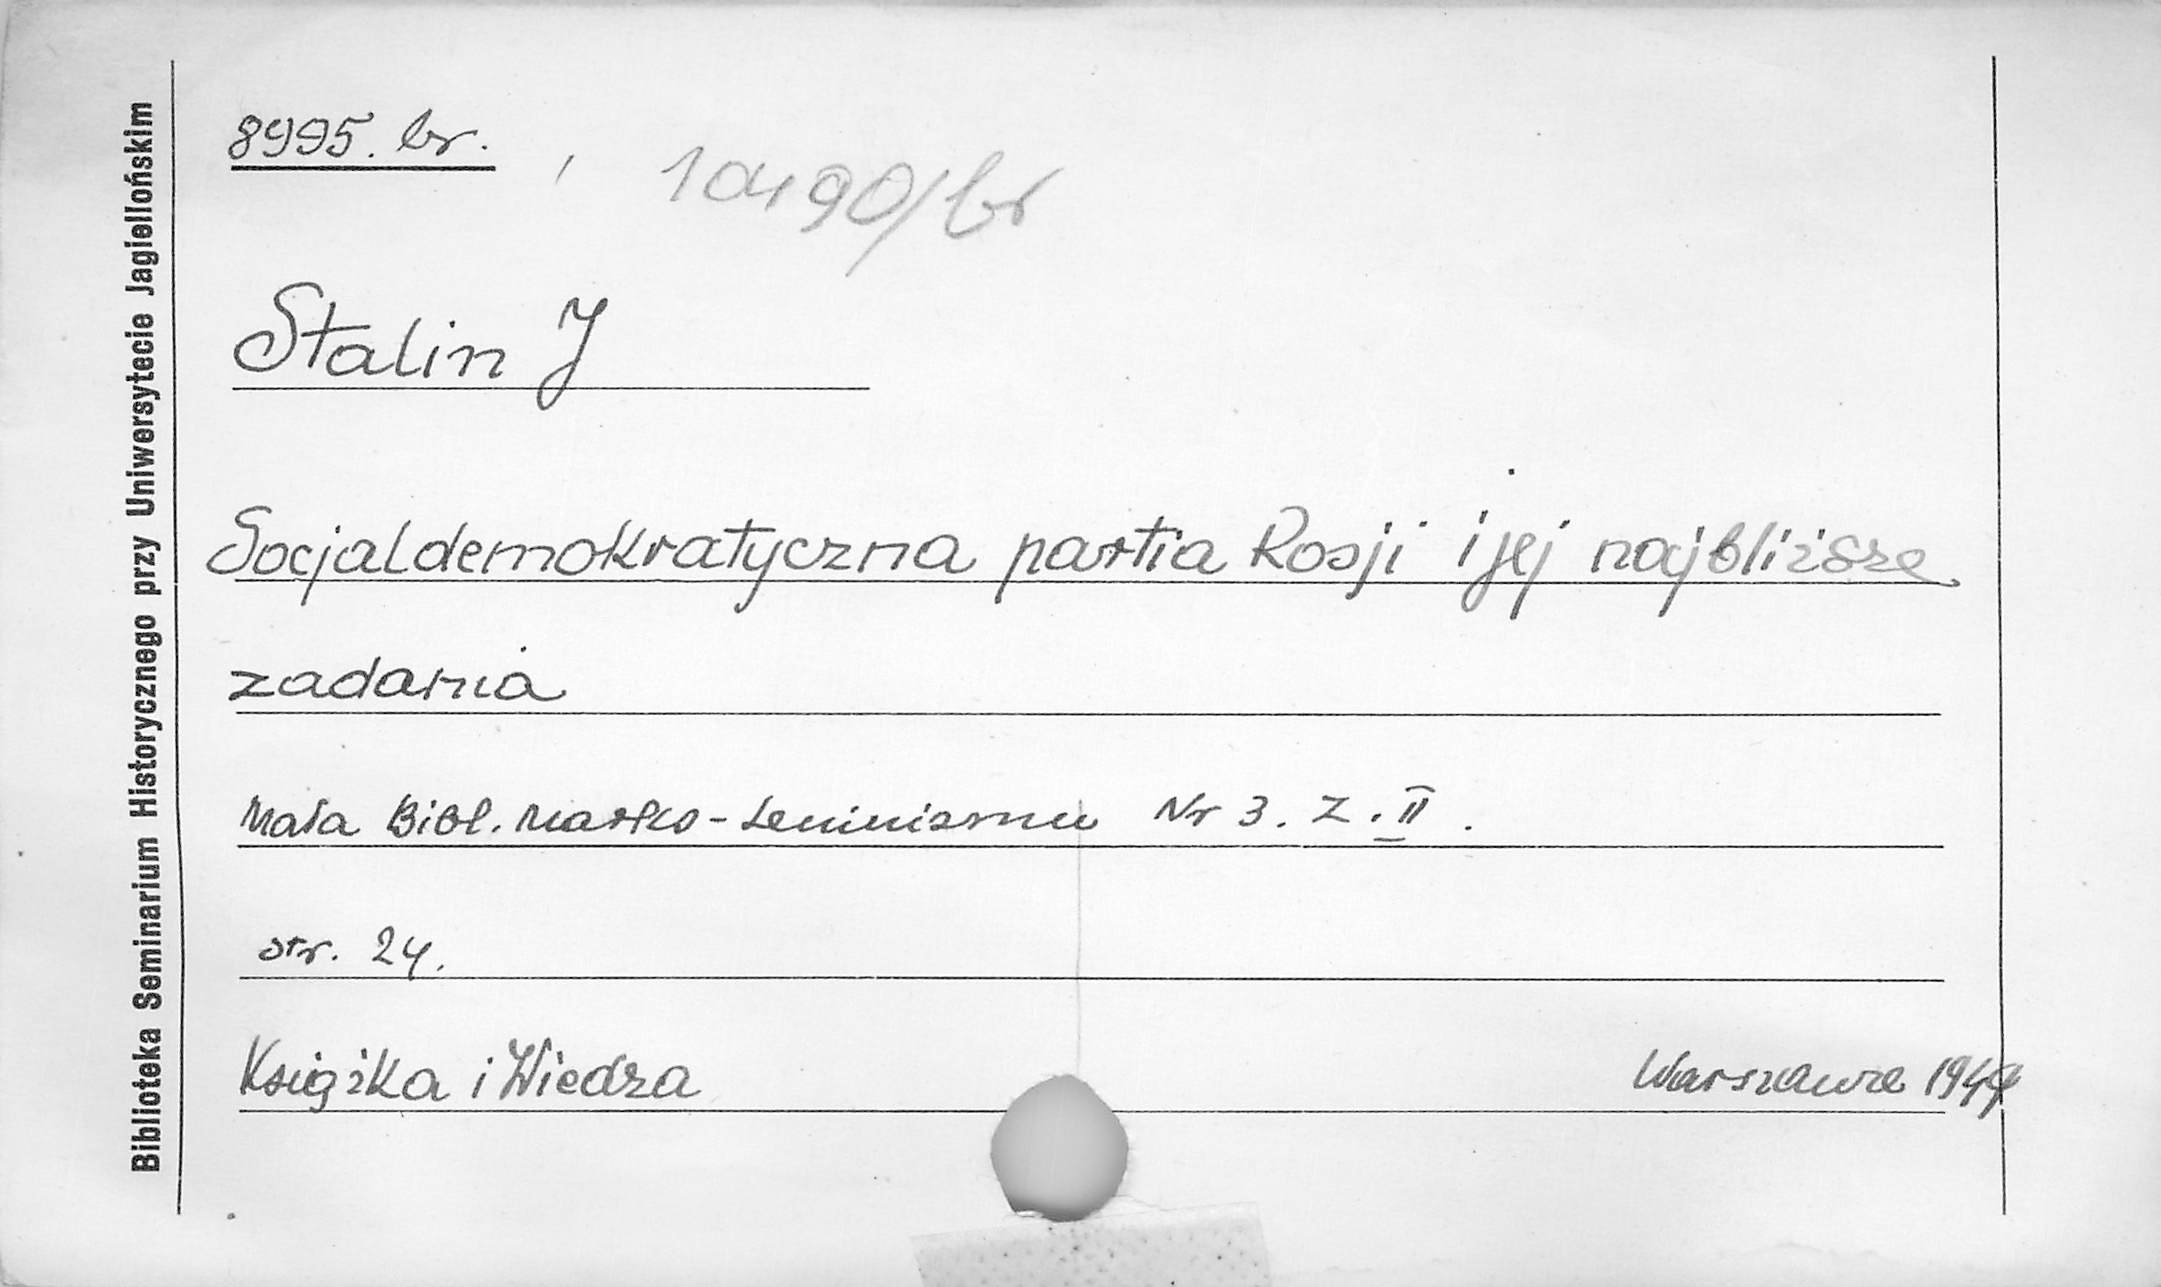 Biblioteka Seminarium Historycznego przy Uniwersytecie Jagiellońskim
8995. br. , 10490/br
Stalin J
Socjaldemokratyczna partia Rosji i jej najbliższe
zadania
Mała Bibl. Marks-Leninizmu Nr 3. Z. II.
str. 24.
Książka i Wiedza Warszawa 1949